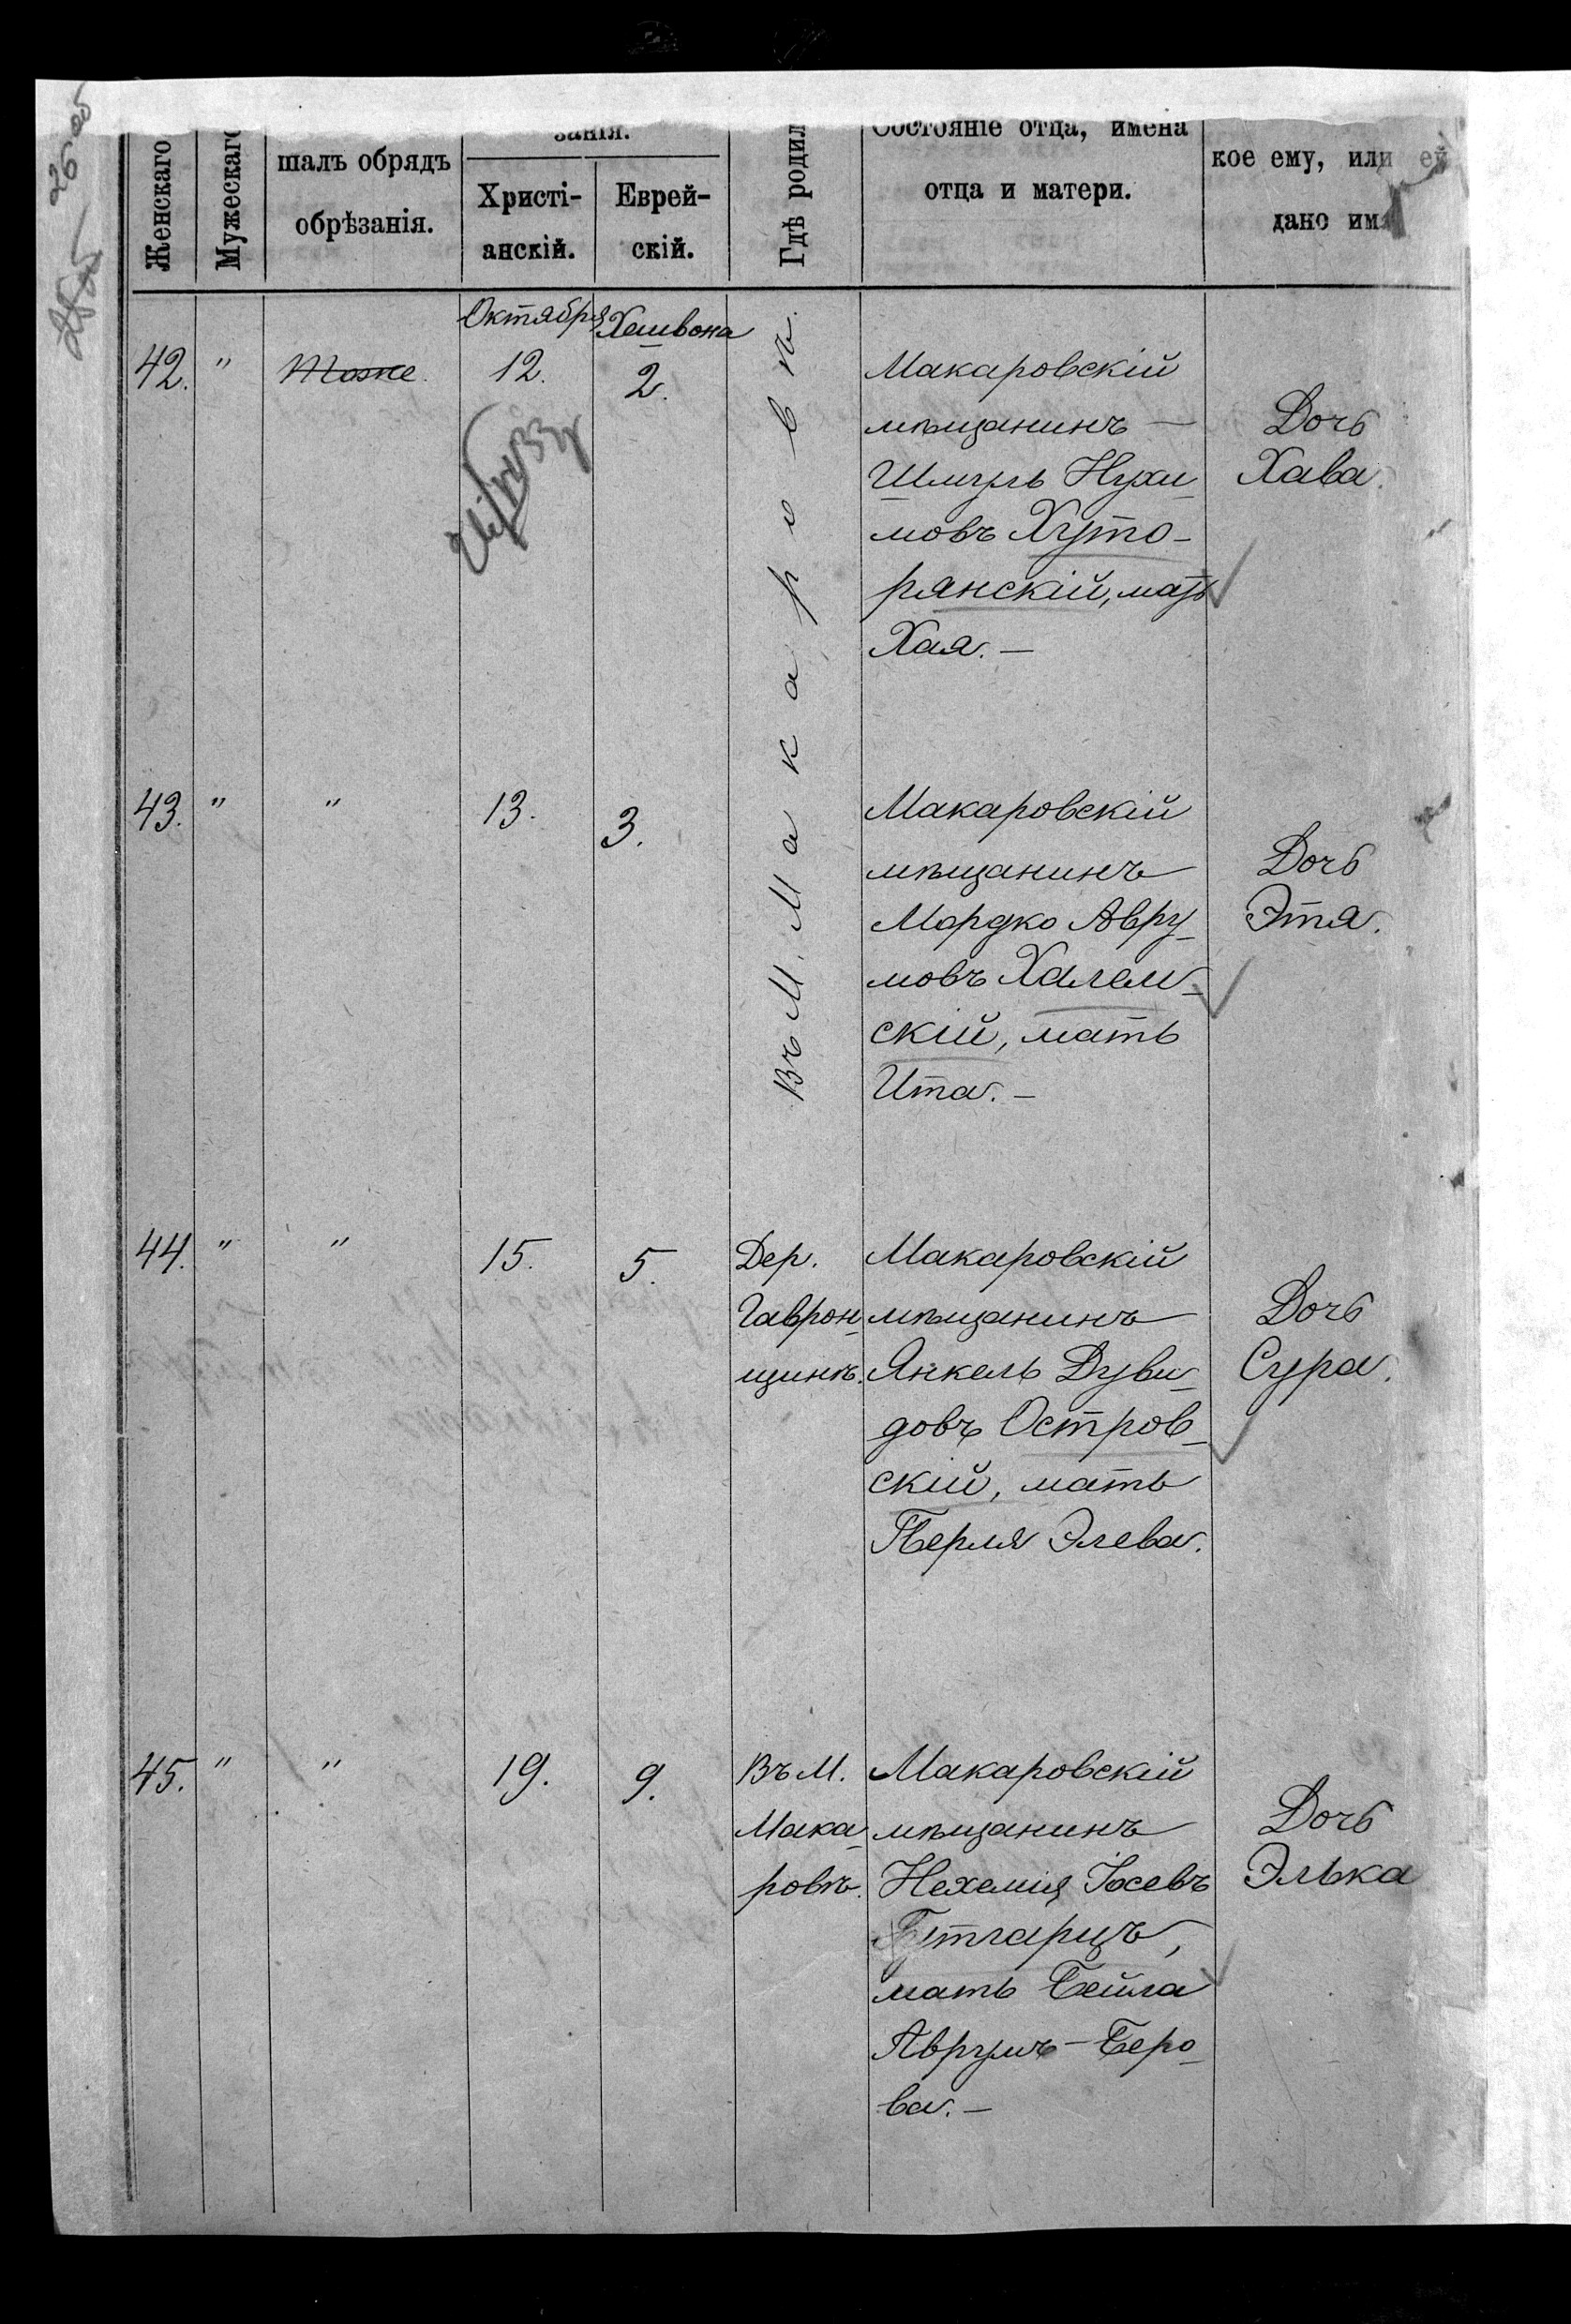 Женскаго
Мужескаго
шалъ обрядъ
обрѣзанія.
занія.
Христі-
анскій.
Еврей-
скій.
Гдѣ родил
Состояніе отца, имена
отца и матери.
кое ему, или ей
дано имя
Октября
Хешвона
42.
"
Тоже
12.
2.
Въ М. Макаровѣ.
Макаровскій
мѣщанинъ —
Шмуль Нухи-
мовъ Хуто-
рянскій, мать
Хая. —
Дочь
Хава.
43.
"
"
13.
3.
Макаровскій
мѣщанинъ
Мордко Авру-
мовъ Халем-
скій, мать
Ита. —
Дочь
Этя.
44.
"
"
15.
5.
Дер.
Гаврон-
щинѣ.
Макаровскій
мѣщанинъ
Янкель Дуви-
довъ Остров-
скій, мать
Перля Элева.
Дочь
Сура.
45.
"
"
19.
9.
Въ М.
Мака-
ровѣ.
Макаровскій
мѣщанинъ
Нехемія Іосевъ
Гутгарцъ,
мать Бейла
Аврумъ-Беро-
ва. —
Дочь
Элька